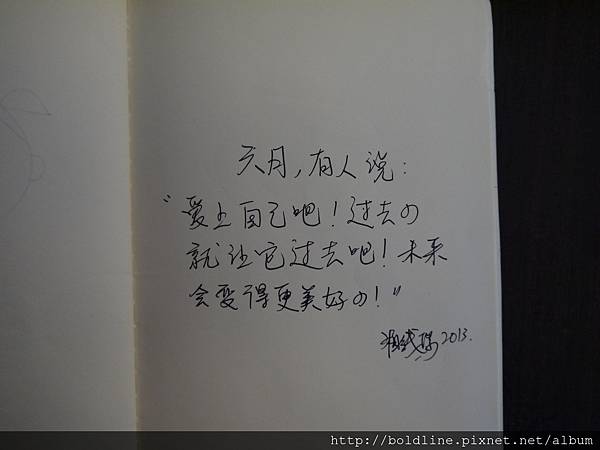 六月，有人说：
“爱上自己吧！过去の
就让它过去吧！未来
会变得更美好の！”
2013.
http://boldline.pixnet.net/album